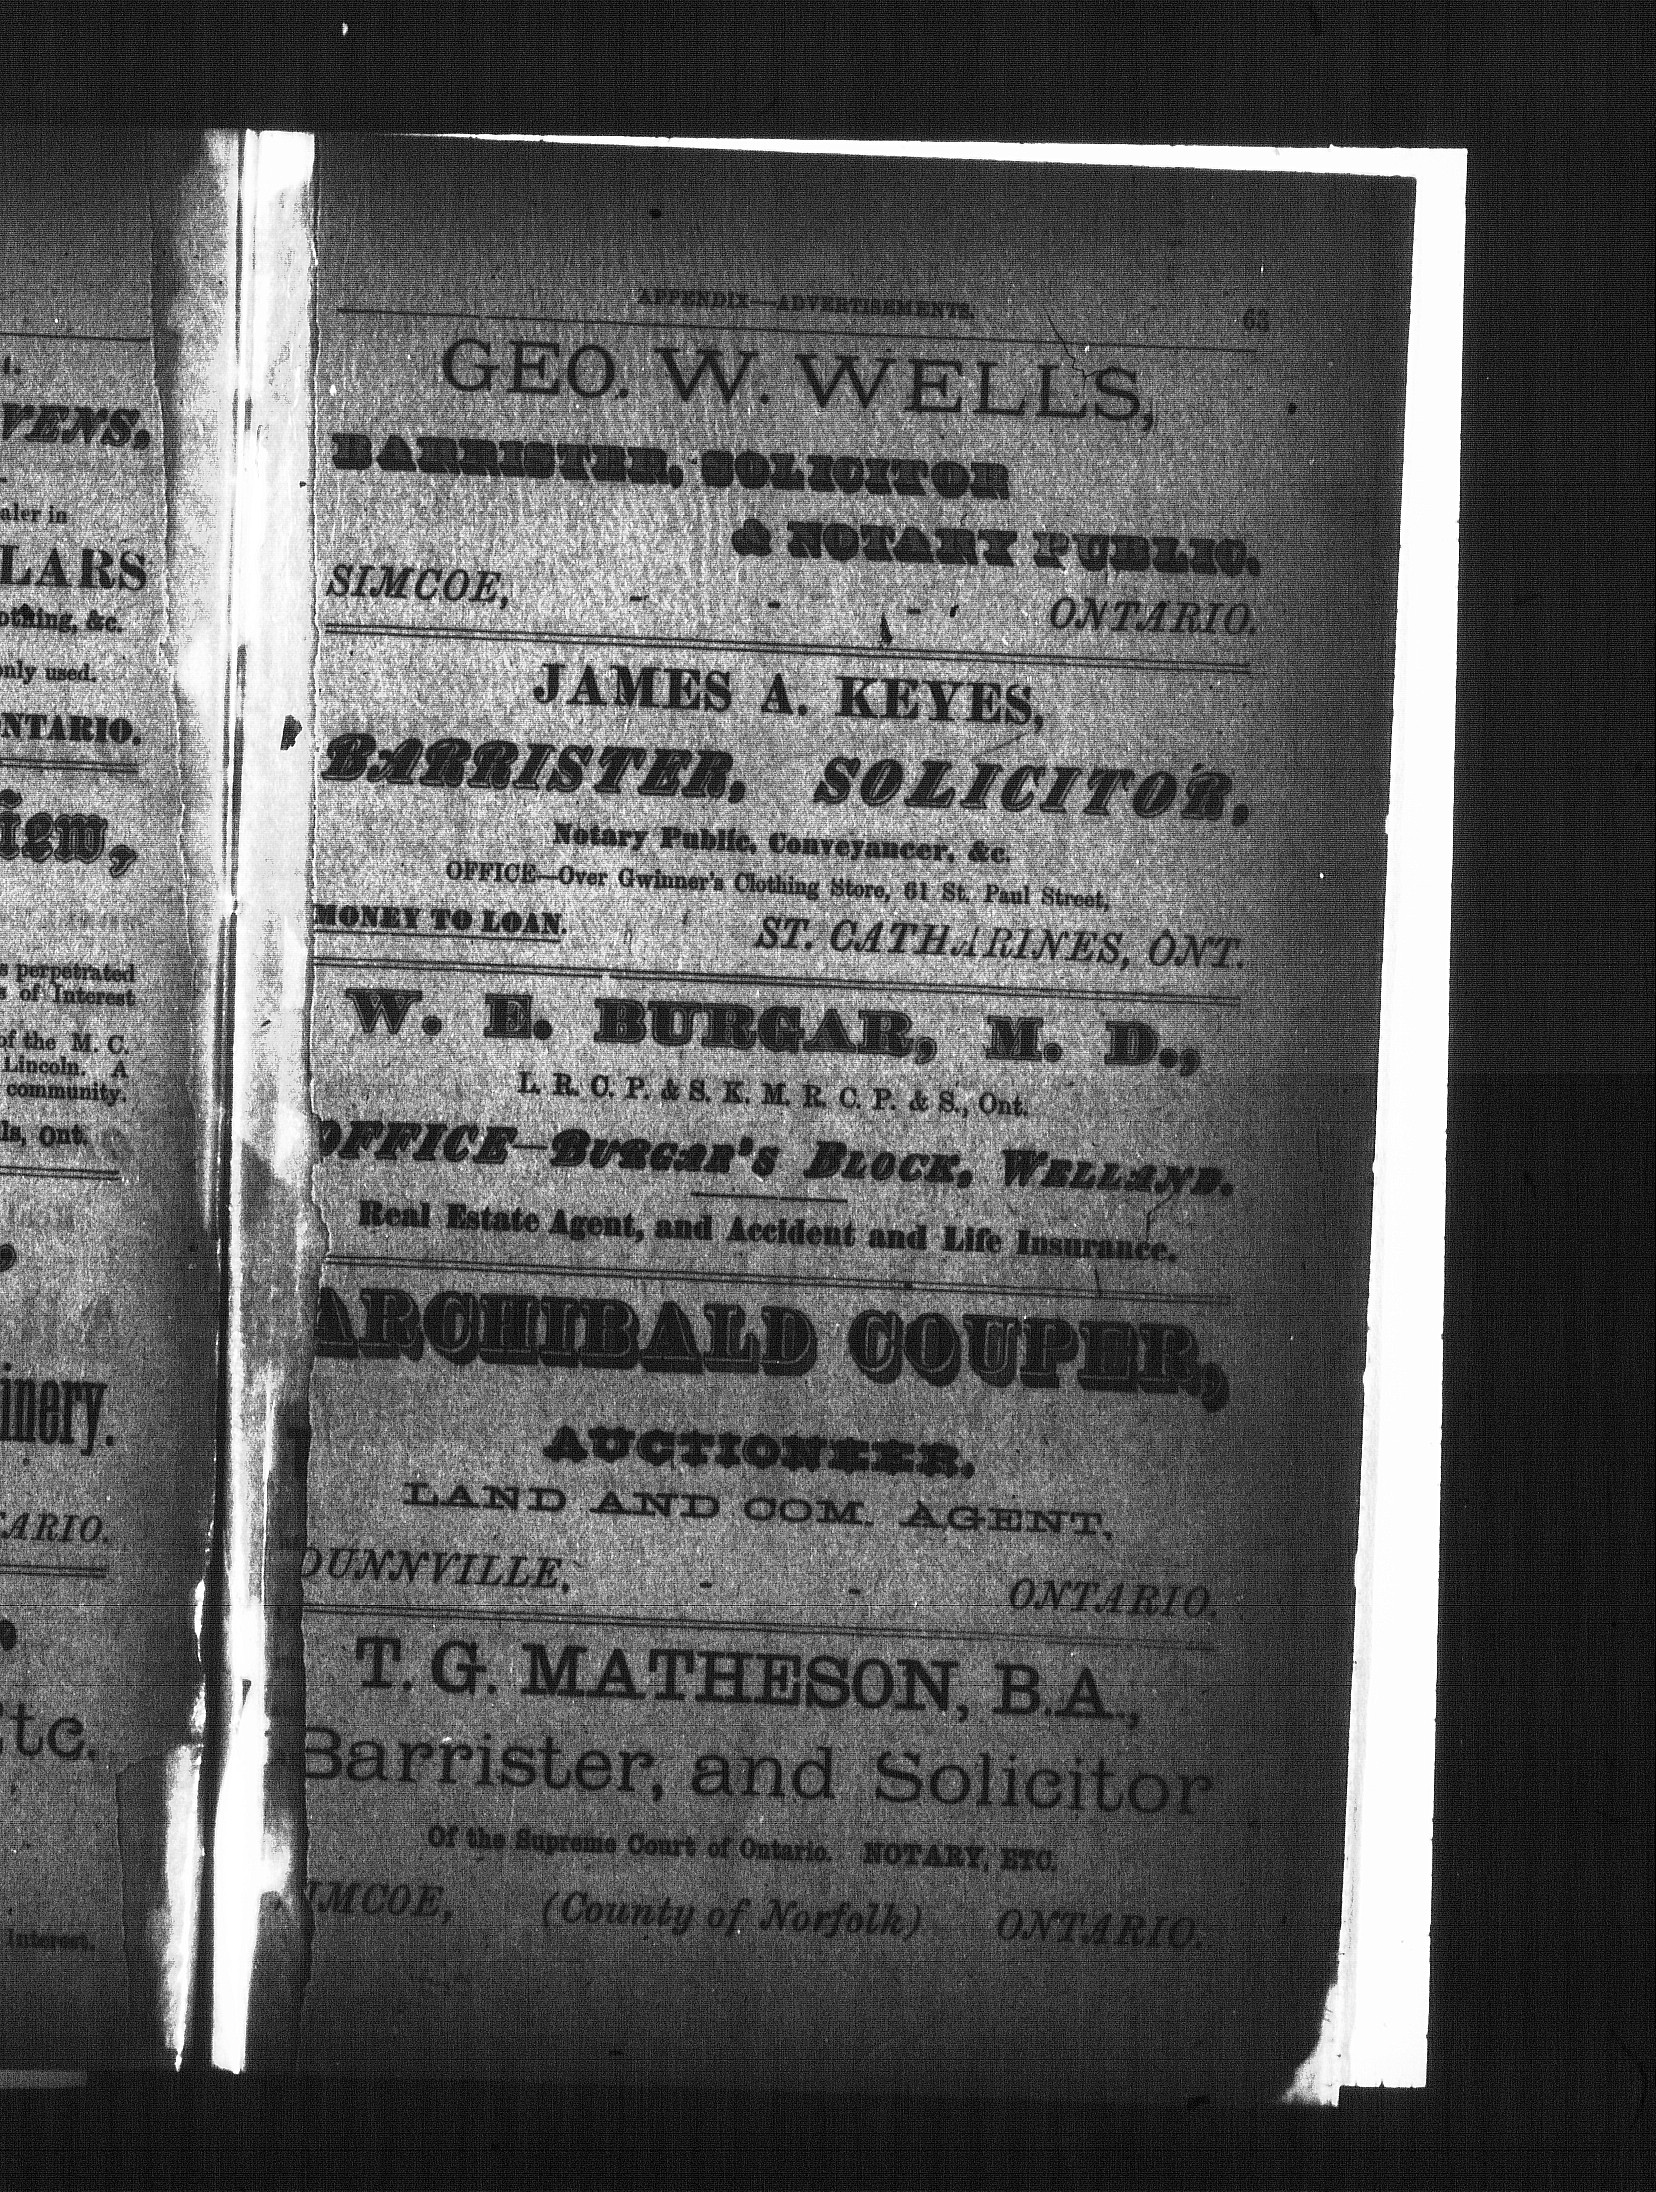 t.
VENS.
aler in
LARS
othing, &c.
only used.
NTARIO.
iew,
s perpetrated
s of Interest
of the M. C.
Lincoln. A
community.
ls, Ont.
,
inery.
TARIO.
Etc.
Interest.
APPENDIX—ADVERTISEMENTS. 63
GEO. W. WELLS,
BARRISTER, SOLICITOR
& NOTARY PUBLIC.
SIMCOE, - - - ONTARIO.
JAMES A. KEYES,
BARRISTER, SOLICITOR,
Notary Public, Conveyancer, &c.
OFFICE—Over Gwinner's Clothing Store, 61 St. Paul Street,
MONEY TO LOAN. ST. CATHARINES, ONT.
W. E. BURGAR, M. D.,
L. R. C. P. & S. K. M. R. C. P. & S., Ont.
OFFICE—BURGAR'S BLOCK, WELLAND.
Real Estate Agent, and Accident and Life Insurance.
ARCHIBALD COUPER,
AUCTIONEER.
LAND AND COM. AGENT,
DUNNVILLE, - - ONTARIO.
T. G. MATHESON, B.A.,
Barrister, and Solicitor
Of the Supreme Court of Ontario. NOTARY, ETC.
SIMCOE, (County of Norfolk) ONTARIO.